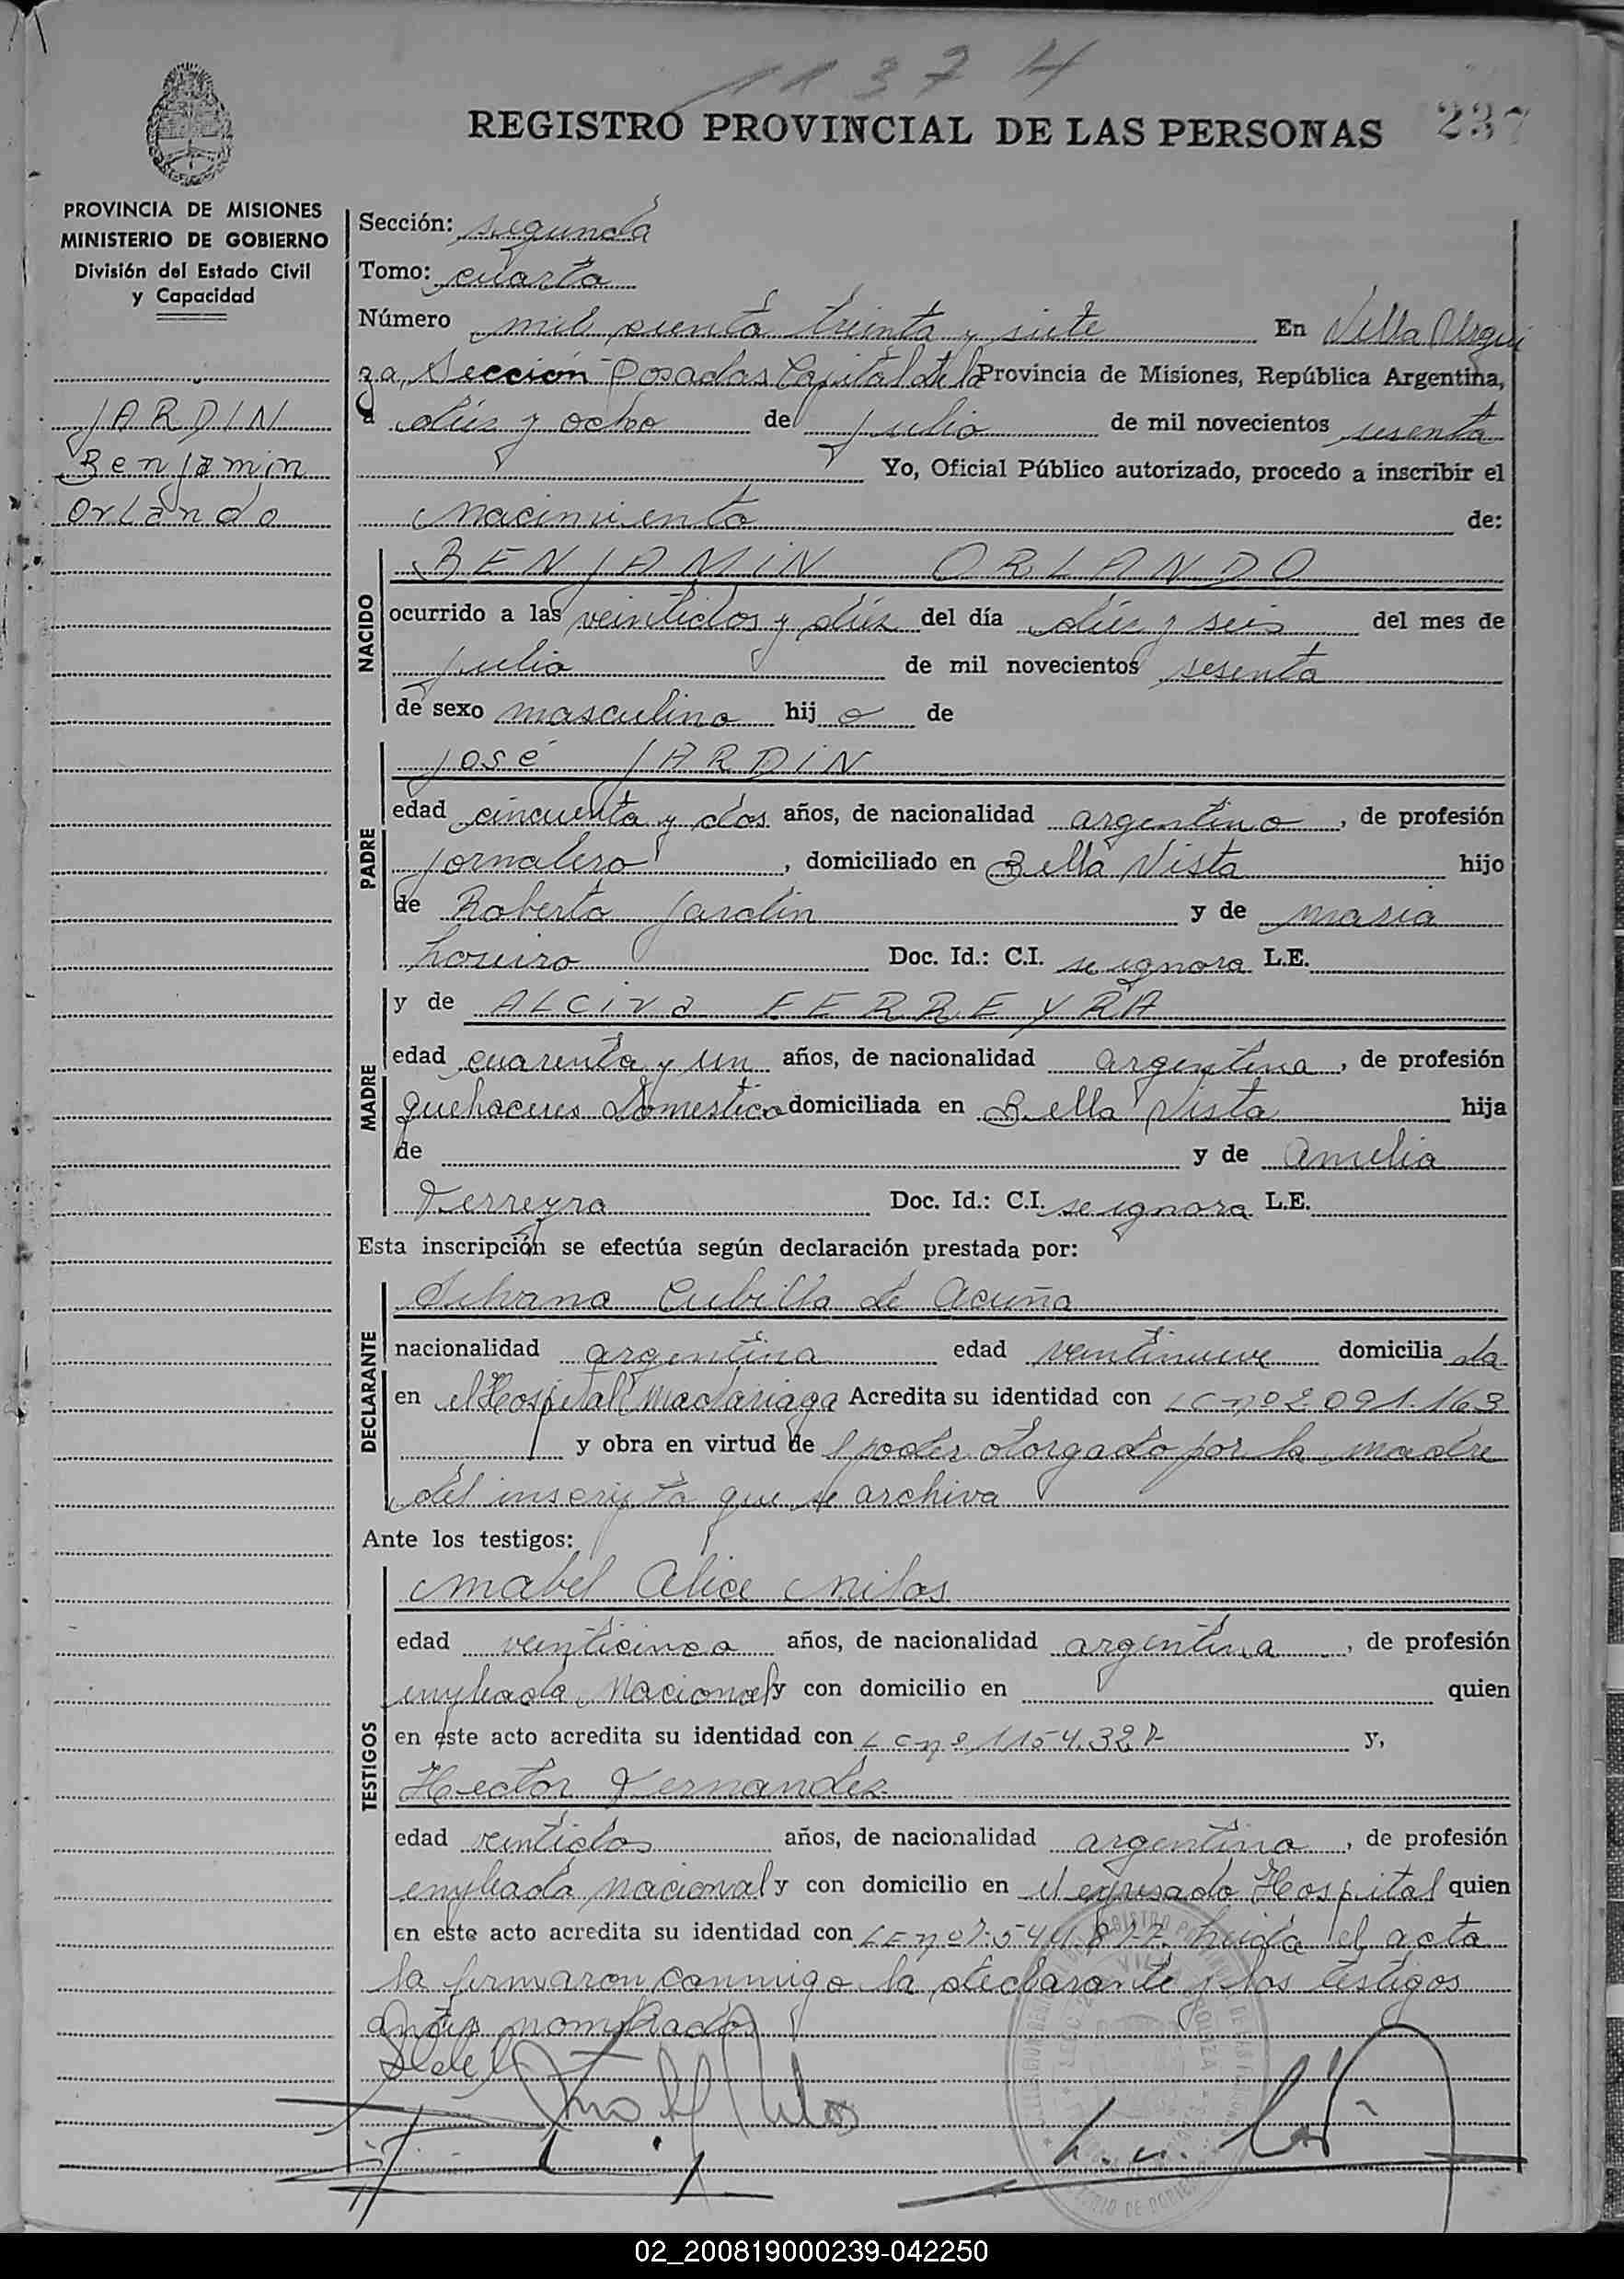 1137 4
REGISTRO PROVINCIAL DE LAS PERSONAS 237
PROVINCIA DE MISIONES
MINISTERIO DE GOBIERNO
División del Estado Civil
y Capacidad
JARDIN
Benjamin
Orlando
Sección: segunda
Tomo: cuarto
Número mil ciento treinta y siete En Villa Urqui
za, Sección Posadas Capital de la Provincia de Misiones, República Argentina,
a diez y ocho de julio de mil novecientos sesenta
Yo, Oficial Público autorizado, procedo a inscribir el
nacimiento de:
NACIDO
BENJAMIN ORLANDO
ocurrido a las veintidos y diez del día diez y seis del mes de
julio de mil novecientos sesenta
de sexo masculino hij o de
PADRE
José JARDIN
edad cincuenta y dos años, de nacionalidad argentino, de profesión
jornalero, domiciliado en Bella Vista hijo
de Roberto Jardin y de Maria
Doc. Id.: C.I. se ignora L.E.
MADRE
y de ALCIVA FERREYRA
edad cuarenta y un años, de nacionalidad argentina, de profesión
quehaceres Domestico domiciliada en Bella Vista hija
de y de Amelia
Ferreyra Doc. Id.: C.I. se ignora L.E.
Esta inscripción se efectúa según declaración prestada por:
DECLARANTE
Silvana Cubilla de Acuña
nacionalidad argentina edad ventinueve domicilia da
en el Hospital Madariaga Acredita su identidad con LC nº 2.091.163
y obra en virtud de l poder otorgado por la madre
del inscripto que se archiva
Ante los testigos:
TESTIGOS
Mabel Alice Milos
edad veinticinco años, de nacionalidad argentina, de profesión
empleada Nacional y con domicilio en quien
en este acto acredita su identidad con LC nº y,
Hector Fernandez
edad veintidos años, de nacionalidad argentino, de profesión
empleado nacional y con domicilio en el expresado Hospital quien
en este acto acredita su identidad con LE nº leida el acta
la firmaron conmigo la declarante y los testigos
antes nombrados
02_200819000239-042250